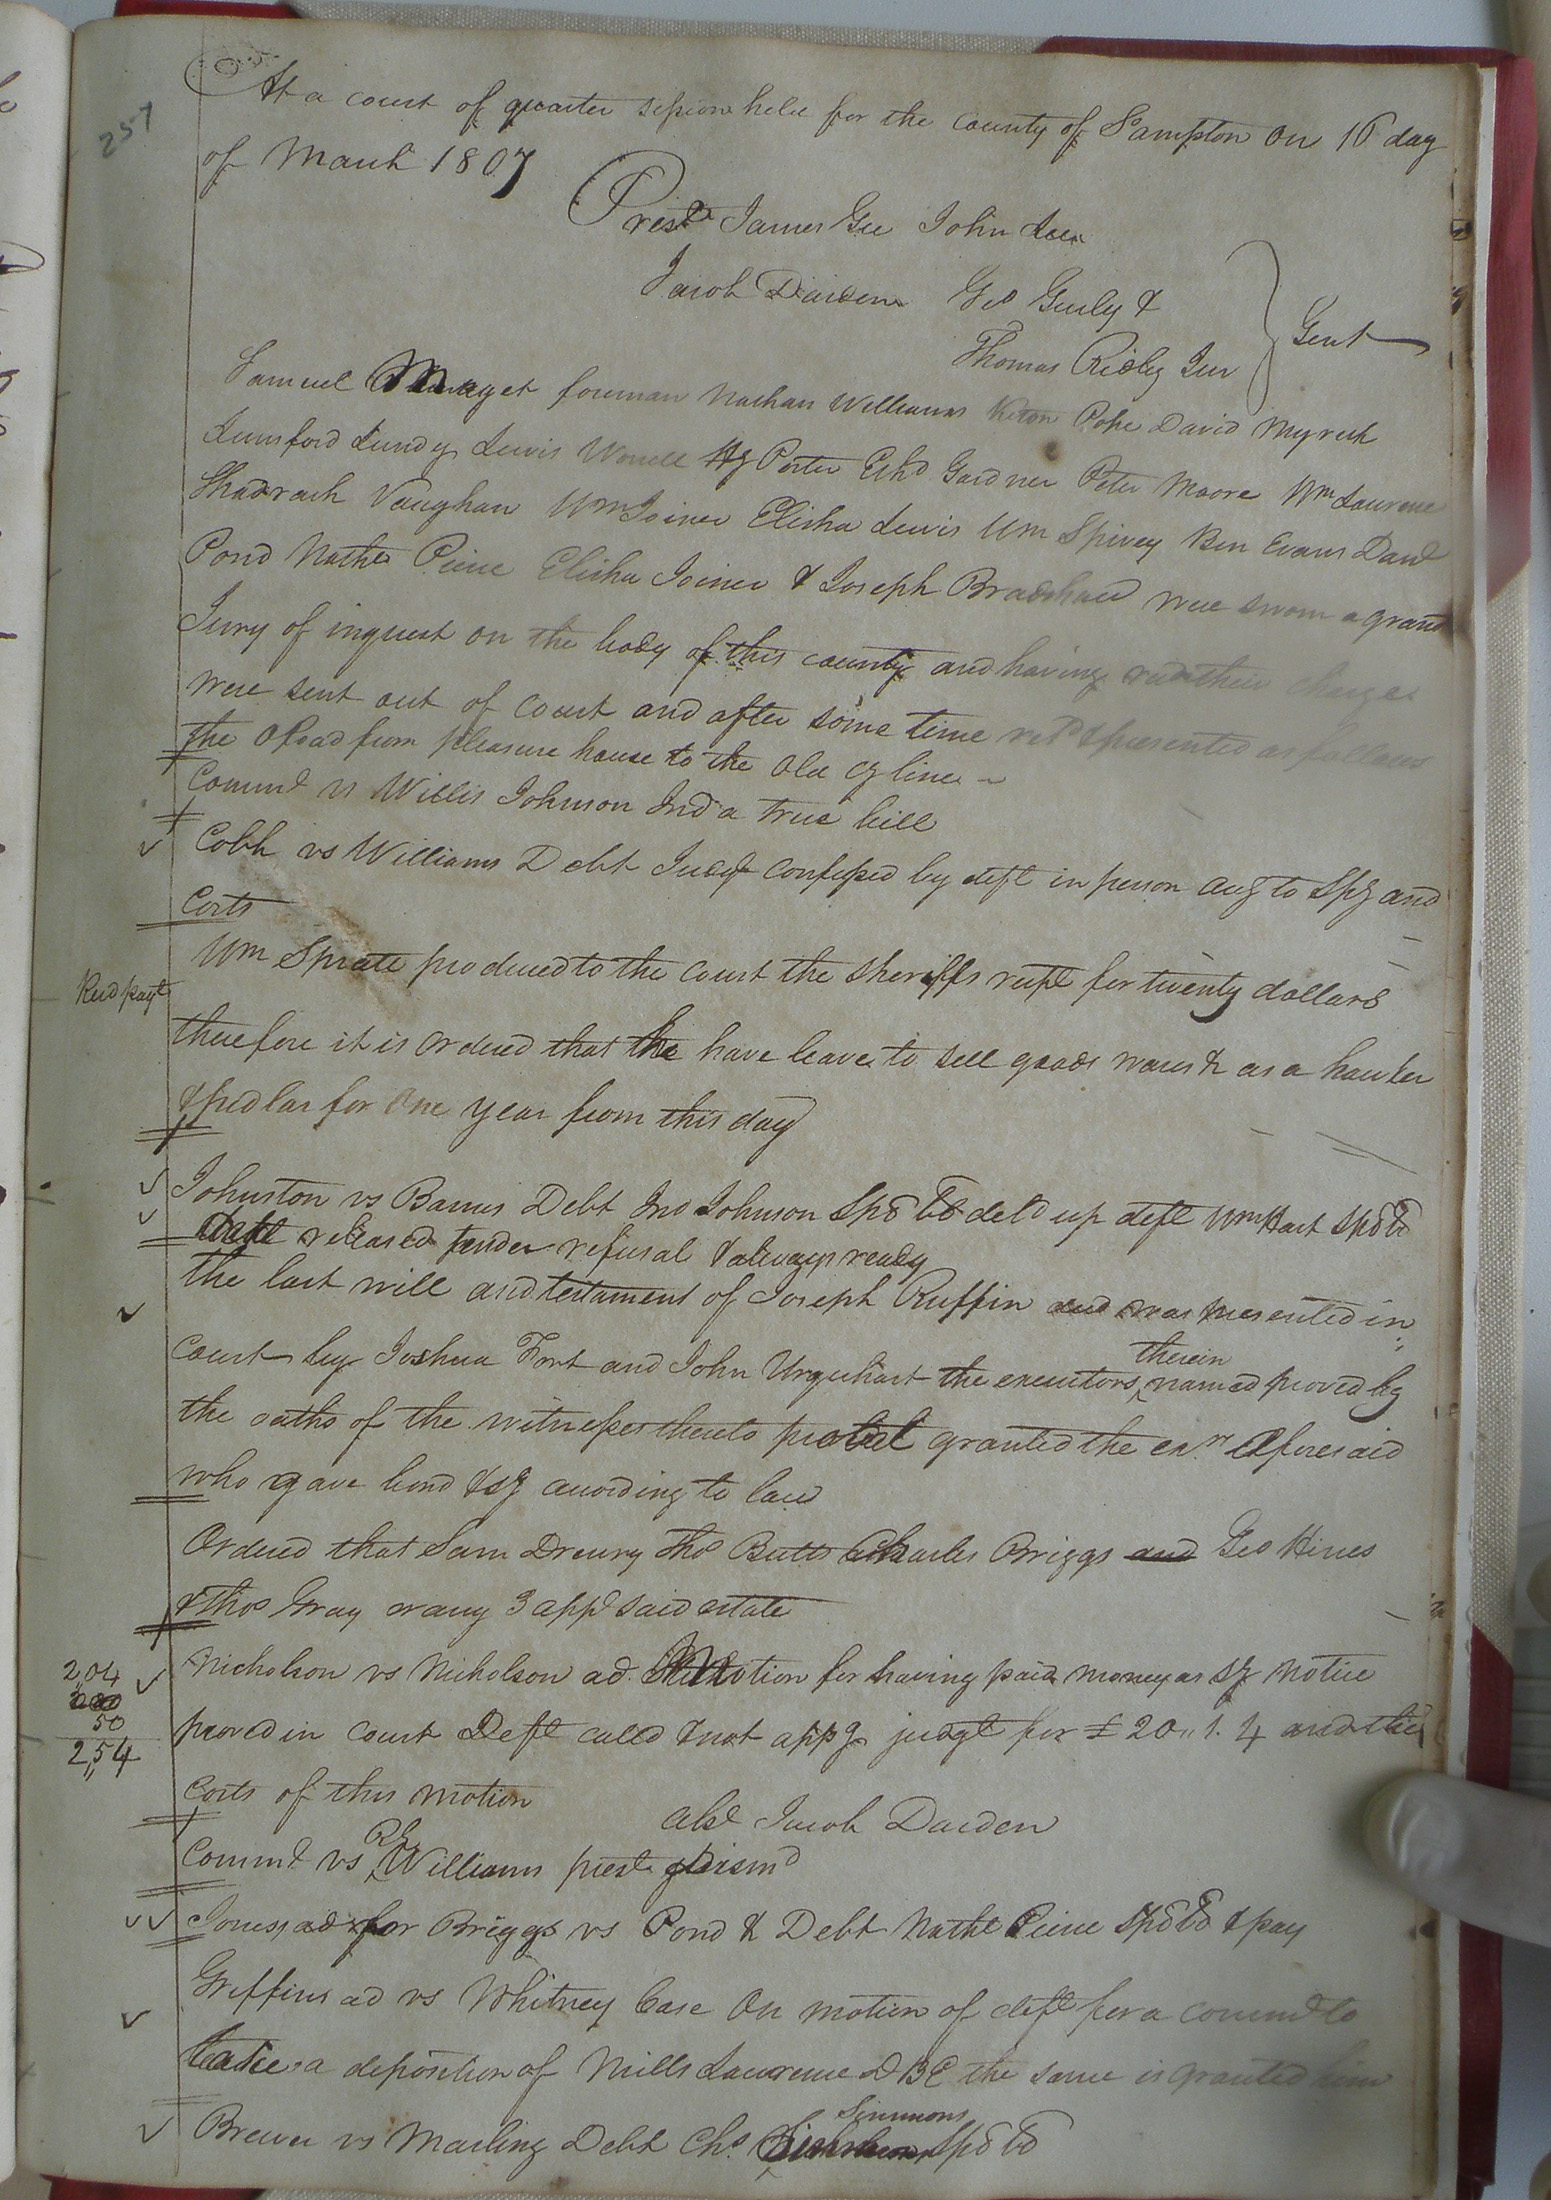 257
At a court of quarter session held for the county of S°ampton on 16 day
of March 1807
Prest James Gee John Lee
Jacob Darden Geo Gurly &
Thomas Ridley Jun } Gent
Samuel Maget foreman Nathan Williams Keton Pope David Myrick
Lunsford Lundy Lewis Worrell Hy Porter Eth'd Gardner Peter Moore Wm Lawrence
Shadrach Vaughan Wm Joiner Elisha Lewis Wm Spivey Ben Evans Danl
Pond Nathl Peirce Elisha Joiner & Joseph Bradshaw were sworn a grand
Jury of inquest on the body of this county and having recd their charge
were sent out of Court and after some time retd & presented as follows
the Road from pleasure house to the old Cy line
Commt vs Willis Johnson Ind a true bill
Cobb vs Williams Debt Judgt confessed by deft in person accg to Spy and
Costs
Wm Spratt produced to the court the sheriffs rect for twenty dollars
Recd payt
therefore it is ordered that he have leave to sell goods wares & as a hawker
& pedlar for one year from this day
Johnston vs Barnes Debt Jno Johnson Spd bd deld up deft Wm Hart Spd bd
deft released tender refusal & always ready
the last will and testament of Joseph Ruffin and was presented in
court by Joshua Fort and John Urquhart the executors therein named proved by
the oaths of the witnesses thereto probat granted the exrs aforesaid
who gave bond & sy according to law
Ordered that Sam Drewry Thos Butts Charles Briggs and Geo Hines
& Thos Gray or any 3 appe said estate
2,04
50
2,,54
Nicholson vs Nicholson ad. Motion for having paid money as sy Notice
proved in court Deft called & not appg judgt for £20,,1.4 and the
Costs of this motion
abst Jacob Darden
Commt vs Williams prest dismd
Jones ad for Briggs vs Pond & Debt Nathl Peirce Spd bd & pay
Griffins ad vs Whitney Case On motion of deft for a commn to
take a deposition of Mills Lawrence D B E the same is granted him
Brewer vs Marling Debt Chs Simmons Spd bd